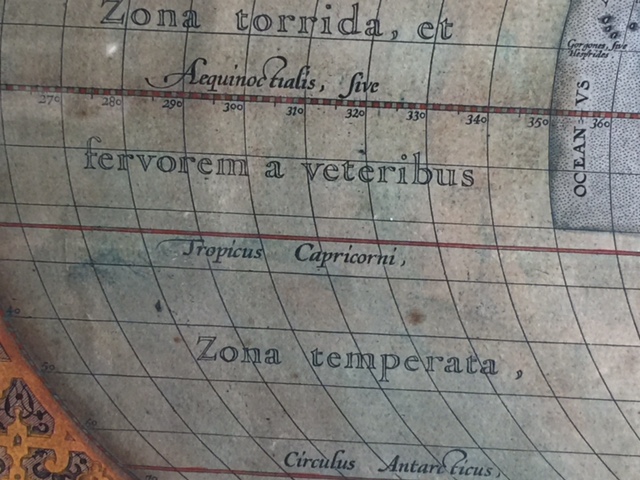 Zona torrida, et
Gorgones, sive
Hesperides
Aequinoctialis, sive
270 280 290 300 310 320 330 340 350 360
OCEAN VS
fervorem a veteribus
Tropicus Capricorni,
40
Zona temperata,
50
Circulus Antarcticus,
70